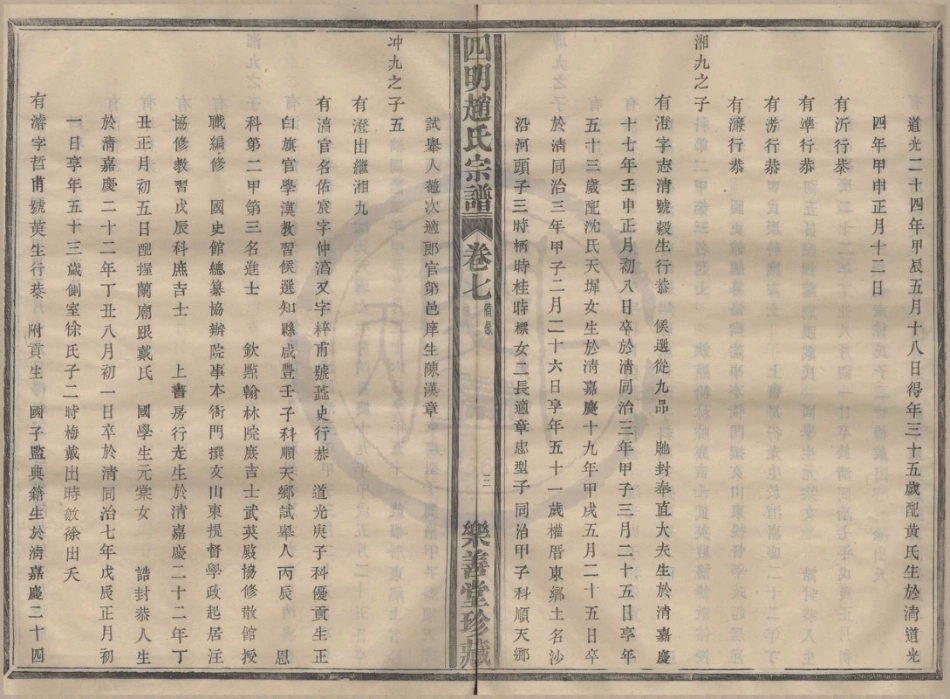 道光二十四年甲辰五月十八日得年三十五歲配黃氏生於清道光
四年甲申正月十二日
有沂行恭
有準行恭
有澇行恭
有濂行恭
湘九之子
有澄字志清號轂生行恭 候選從九品 貤封奉直大夫生於清嘉慶
十七年壬申正月初八日卒於清同治三年甲子三月二十五日享年
五十三歲配沈氏天墀女生於清嘉慶十九年甲戌五月二十五日卒
於清同治三年甲子二月二十六日享年五十一歲權厝東鄉土名沙
沿河頭子三時柄時桂時標女二長適章忠型子同治甲子科順天鄉
四明趙氏宗譜 卷七 備錄 三 樂善堂珍藏
試舉人 次適郎官第邑庠生陳漢章
冲九之子五
有澄出繼湘九
有淯官名佑宸字仲淯又字粹甫號蕋史行恭 道光庚子科優貢生正
白旗官學漢教習候選知縣咸豐壬子科順天鄉試舉人丙辰 恩
科第二甲第三名進士 欽點翰林院庶吉士武英殿協修散館授
職編修 國史館總纂協辦 院事本衙門撰文山東提督學政起居注
協修教習戊辰科庶吉士 上書房行走生於清嘉慶二十二年丁
丑正月初五日配握蘭廟跟戴氏 國學生元棠女 誥封恭人生
於清嘉慶二十二年丁丑八月初一日卒於清同治七年戊辰正月初
一日享年五十三歲側室徐氏子二時梅戴出時斂徐出夭
有濬字哲甫號蓂生行恭 附貢生 國子監典籍生於清嘉慶二十四